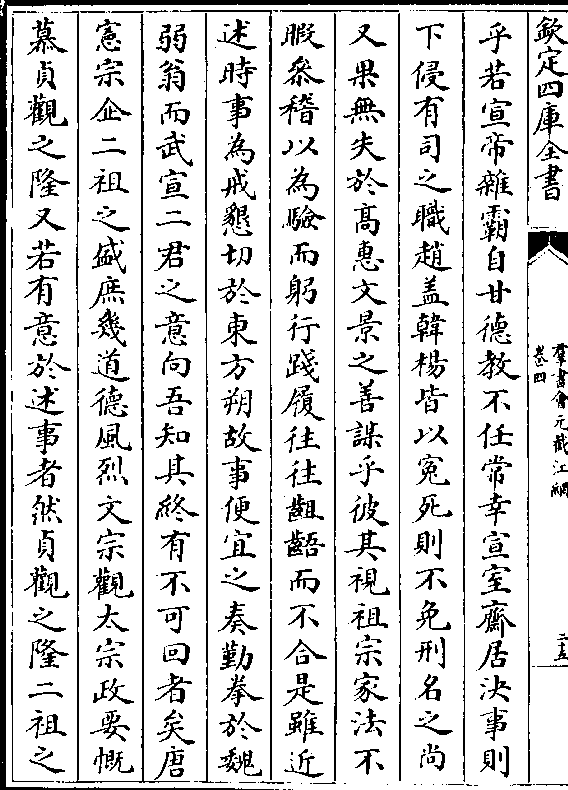 欽定四庫全書
羣書會元截江網
卷四
二五
乎若宣帝雜霸自甘德教不任常幸宣室齋居決事則
下侵有司之職趙盖韓楊皆以寃死則不免刑名之尚
又果無失於髙惠文景之善謀乎彼其視祖宗家法不
暇叅稽以為驗而躬行踐履往往齟齬而不合是雖近
述時事為戒懇切於東方朔故事便宜之奏勤拳於魏
弱翁而武宣二君之意向吾知其終有不可回者矣唐
憲宗企二祖之盛庶幾道德風烈文宗觀太宗政要慨
慕貞觀之隆又若有意於述事者然貞觀之隆二祖之